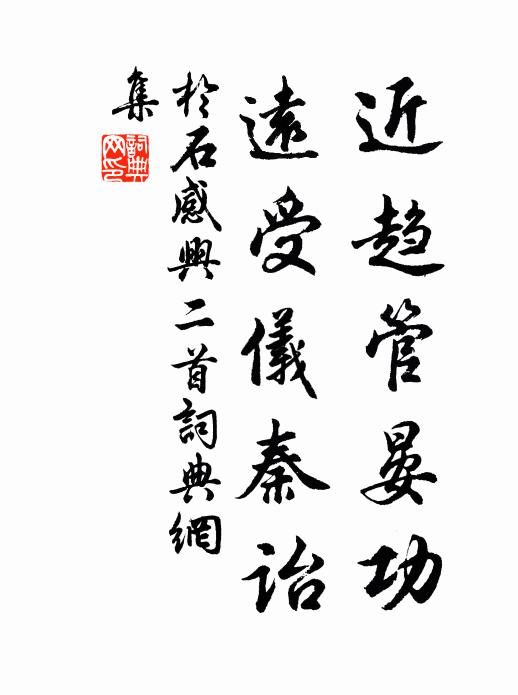 近趋管晏功
遠受儀秦詒
於石感興二首詞典網
集
詞典网印